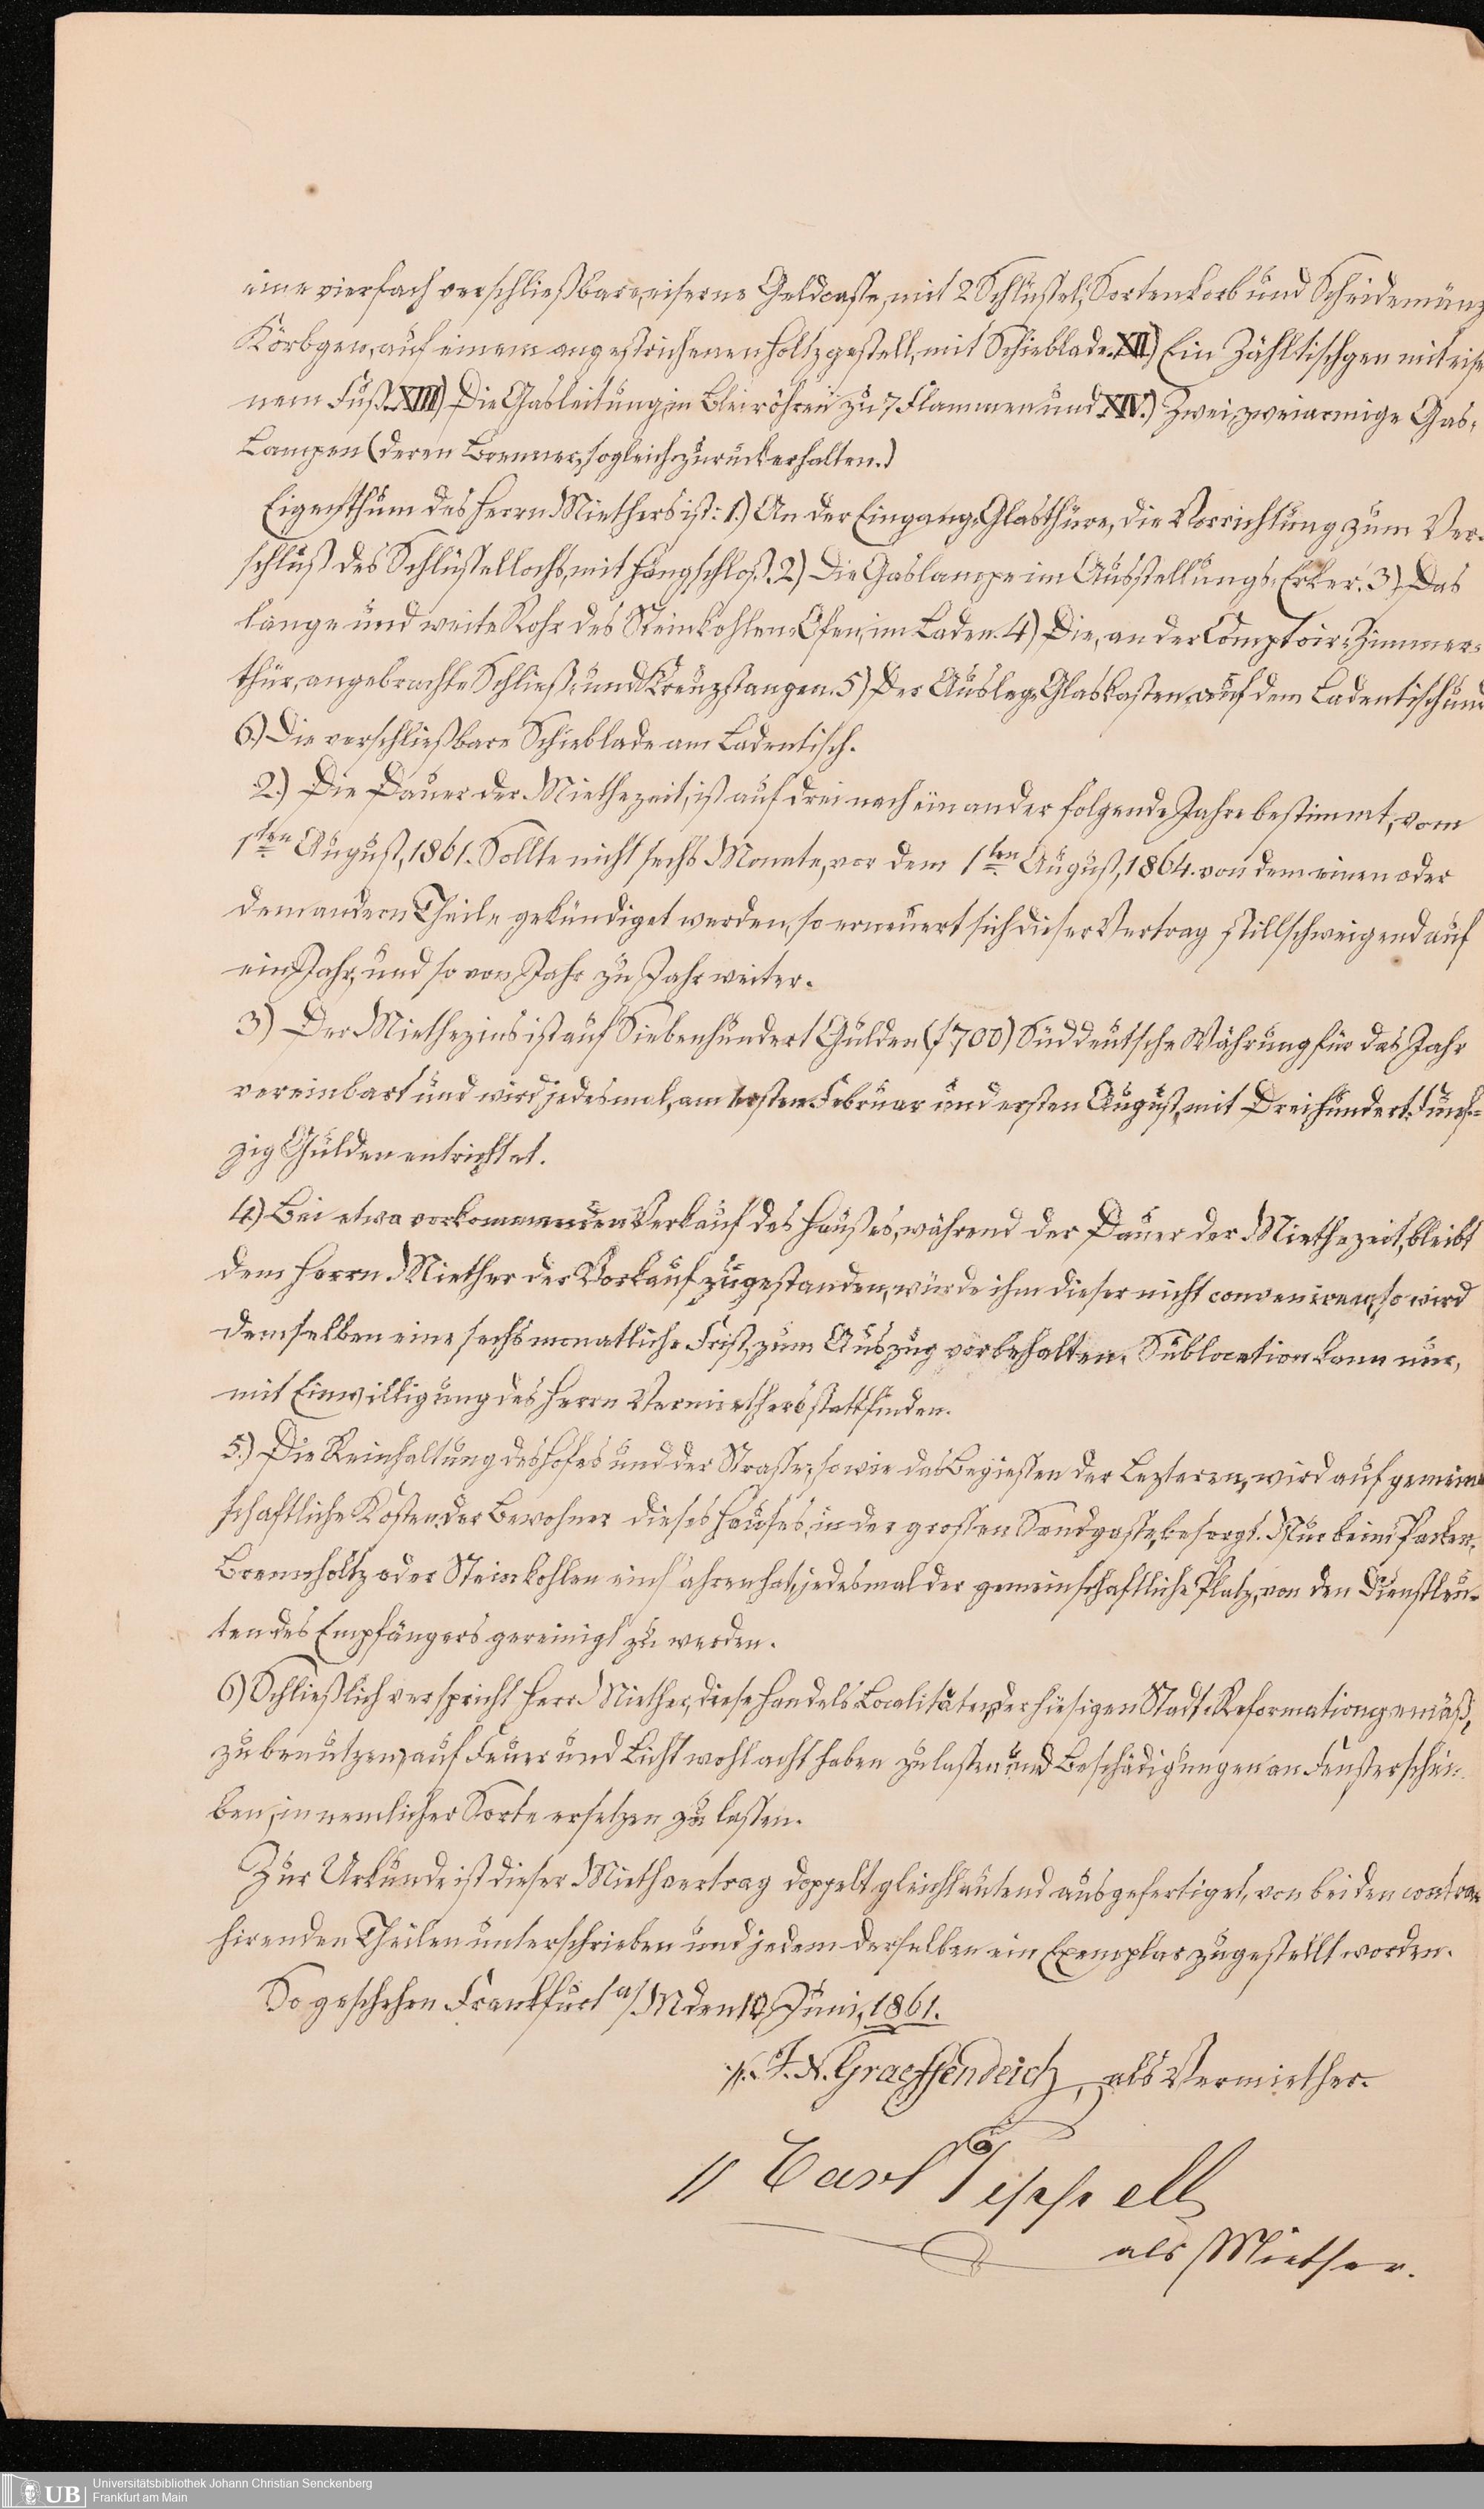 eine vierfach verschließbare, eiserne Geldcasse, mit 2 Schlüssel, Sortenkorb und Scheidemünz
Körbgen, auf einem angestrichenen Holtzgestell, mit Schieblade. XII.) Ein Zähltischgen mit eise
nem Fuß. XIII) Die Gasleitung, in Bleiröhren zu 7 Flammen und XIV.) Zwei, zweiarmige Gas-
Lampen (deren Brenner, sogleich zurückerhalten.)
Eigenthum des Herrn Miethers ist: 1.) An der Eingang-Glasthüre, die Vorrichtung zum Ver-
schluß des Schlüssellochs, mit Hängschloß. 2.) Die Gaslampe im Ausstellungs-Erker. 3.) Das
lange und weite Rohr des Steinkohlen-Ofen, im Laden. 4.) Die, an der Comptoir-Zimmer-
thür, angebrachte Schließ- und Kreuzstangen. 5.) Der Ausleg-Glaskasten, auf dem Ladentisch und
6.) Die verschließbare Schieblade am Ladentisch.
2.) Die Dauer der Miethezeit, ist auf drei nach einander folgende Jahre bestimmt, vom
1ten August, 1861. Sollte nicht sechs Monate, vor dem 1ten August, 1864. von dem einen oder
dem andern Theile gekündiget werden, so erneuert sich dieser Vertrag stillschweigend auf
ein Jahr, und so von Jahr zu Jahr weiter.
3.) Der Miethezins ist auf Siebenhundert Gulden (f 700) Süddeutsche Währung für das Jahr
vereinbart und wird jedesmal, am ersten Februar und ersten August, mit Dreihundert Fünf-
zig Gulden entrichtet.
4.) Bei etwa vorkommenden Verkauf des Haußes, während der Dauer der Miethezeit, bleibt
dem Herrn Miether der Vorkauf zugestanden, würde ihm dieser nicht conveniren, so wird
demselben eine sechsmonatliche Frist, zum Auszug vorbehalten. Sublocation kann nur,
mit Einwilligung des Herrn Vermiethers stattfinden.
5.) Die Reinhaltung des Hofes und der Strasse, sowie das Begiessen der Lezteren, wird auf gemein
schaftliche Kosten, der Bewohner dieses Hauses, in der grossen Sandgasse, besorgt. Nur beim Packen,
Brennholtz oder Steinkohlen einfahren hat, jedesmal der gemeinschaftliche Platz, von den Dienstleu-
ten des Empfängers gereinigt zu werden.
6.) Schließlich verspricht Herr Miether, diese Handels-Localitäten, der hiesigen Stadt-Reformation gemäß,
zu benutzen, auf Feuer und Licht wohl acht haben zu lassen und Beschädigungen an Fensterschei-
ben, in nemlicher Sorte ersetzen zu lassen.
Zur Urkunde ist dieser Miethvertrag doppelt gleichlautend ausgefertiget, von beiden contra-
hirenden Theilen unterschrieben und jedem derselben ein Exemplar zugestellt worden.
So geschehen Frankfurt a/M den 10 Juni, 1861.
J. N. Graeffendeich, als Vermiether.
// Carl Tippell
als Miether.
UB Universitätsbibliothek Johann Christian Senckenberg
Frankfurt am Main